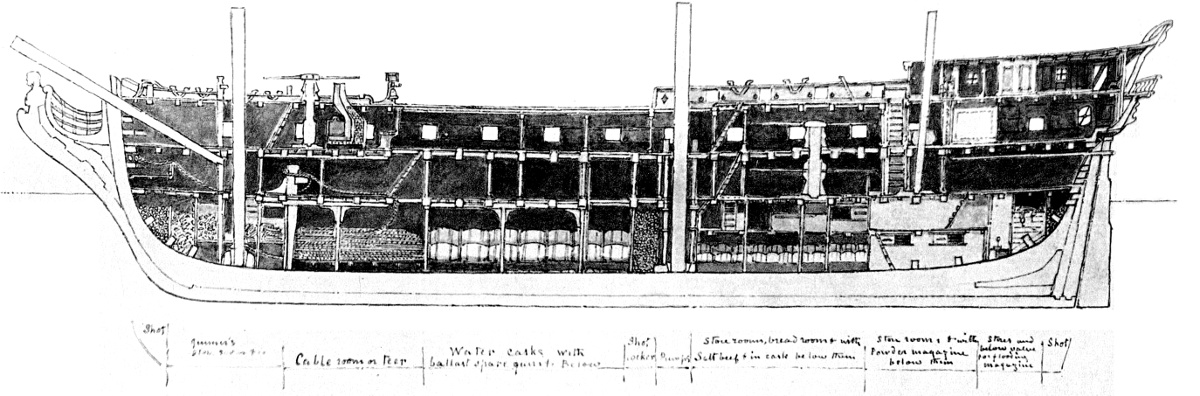 Shot
Gunner's
Cable room or Teer
Water casks with
ballast spare guns &. Below
Shot
Locker
Pumps
Store rooms, bread room & with
Salt beef & in cask below them
Store room & with
Powder magazine
below them
Stores and
below valve
for flooding
magazine
Shot